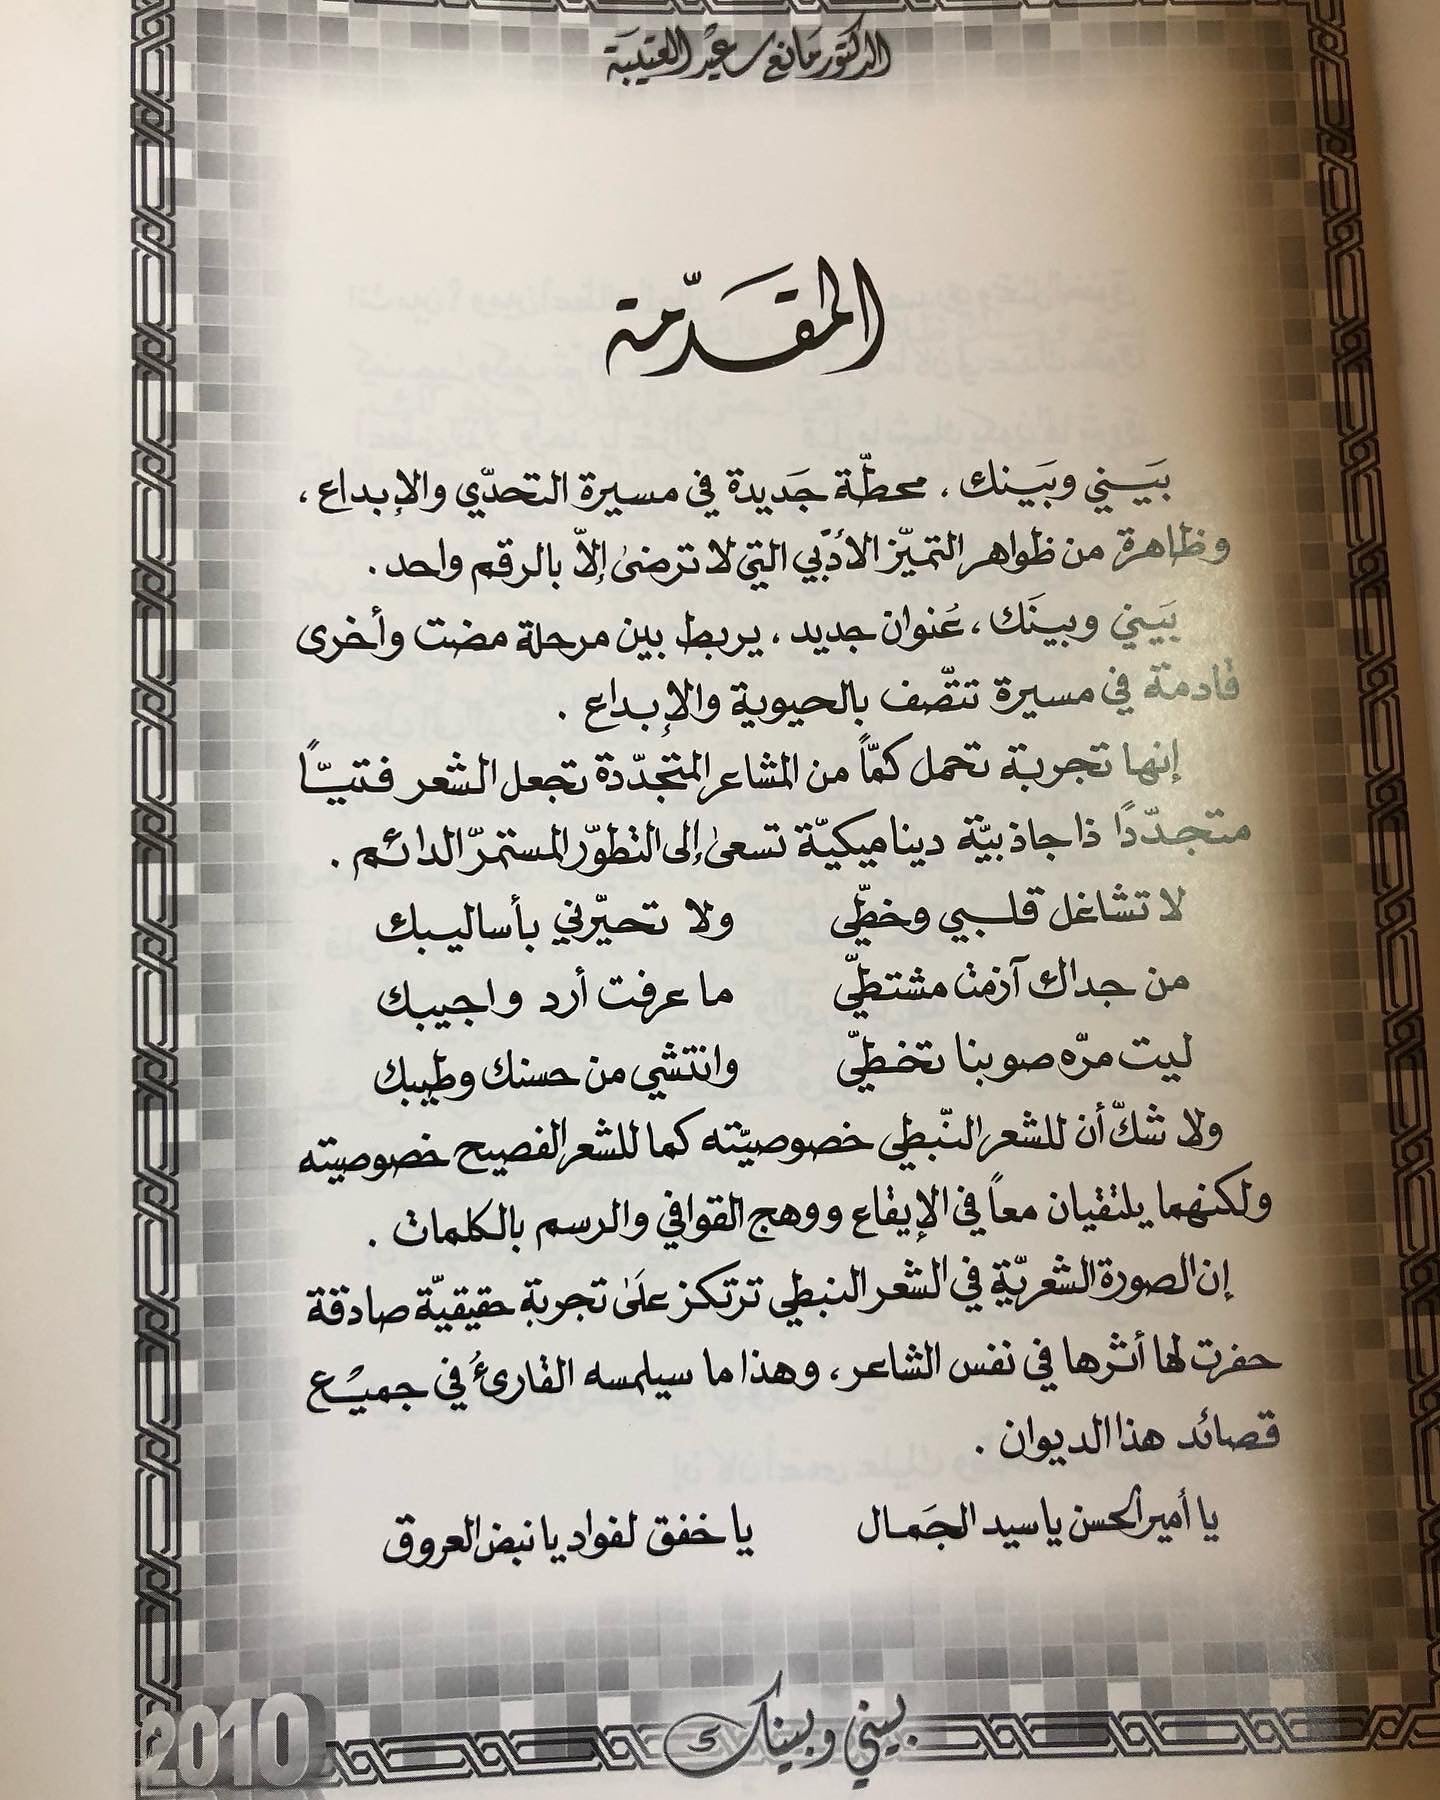 الدكتور مانع سعيد العتيبة
المقدّمة
بَيني وبَينك ، محطّة جَديدة في مسيرة التحدّي والإبداع ،
وظاهرة من ظواهر التميّز الأدَبي التي لا ترضىٰ إلاّ بالرقم واحد .
بَيني وبينَك ، عُنوان جديد ، يربط بين مرحلة مضت وأخرى
قادمة في مسيرة تتّصف بالحيوية والإبداع .
إنها تجربة تحمل كمّاً من المشاعر المتجدّدة تجعل الشعر فتيّاً
متجدّدًا ذا جاذبيّة ديناميكيّة تسعىٰ إلى التطوّر المستمرّ الدائم .
لا تشاغل قلبي وخطّي ولا تحيّرني بأساليبك
من جداك آزمت مشتطّي ما عرفت أرد واجيبك
ليت مرّه صوبنا تخطّي وانتشي من حسنك وطيبك
ولا شكّ أن للشعر النّبطي خصوصيّته كما للشعر الفصيح خصوصيته
ولكنهما يلتقيان معاً في الإيقاع ووهج القوافي والرسم بالكلمات .
إن الصورة الشعريّة في الشعر النبطي ترتكز علَىٰ تجربة حقيقيّة صادقة
حفرت لها أثرها في نفس الشاعر ، وهذا ما سيلمسه القارئُ في جميْع
قصائد هذا الديوان .
يا أمير الحسن يا سيد الجَمال يا خفق لفواد يا نبض العروق
بيني وبينك
2010